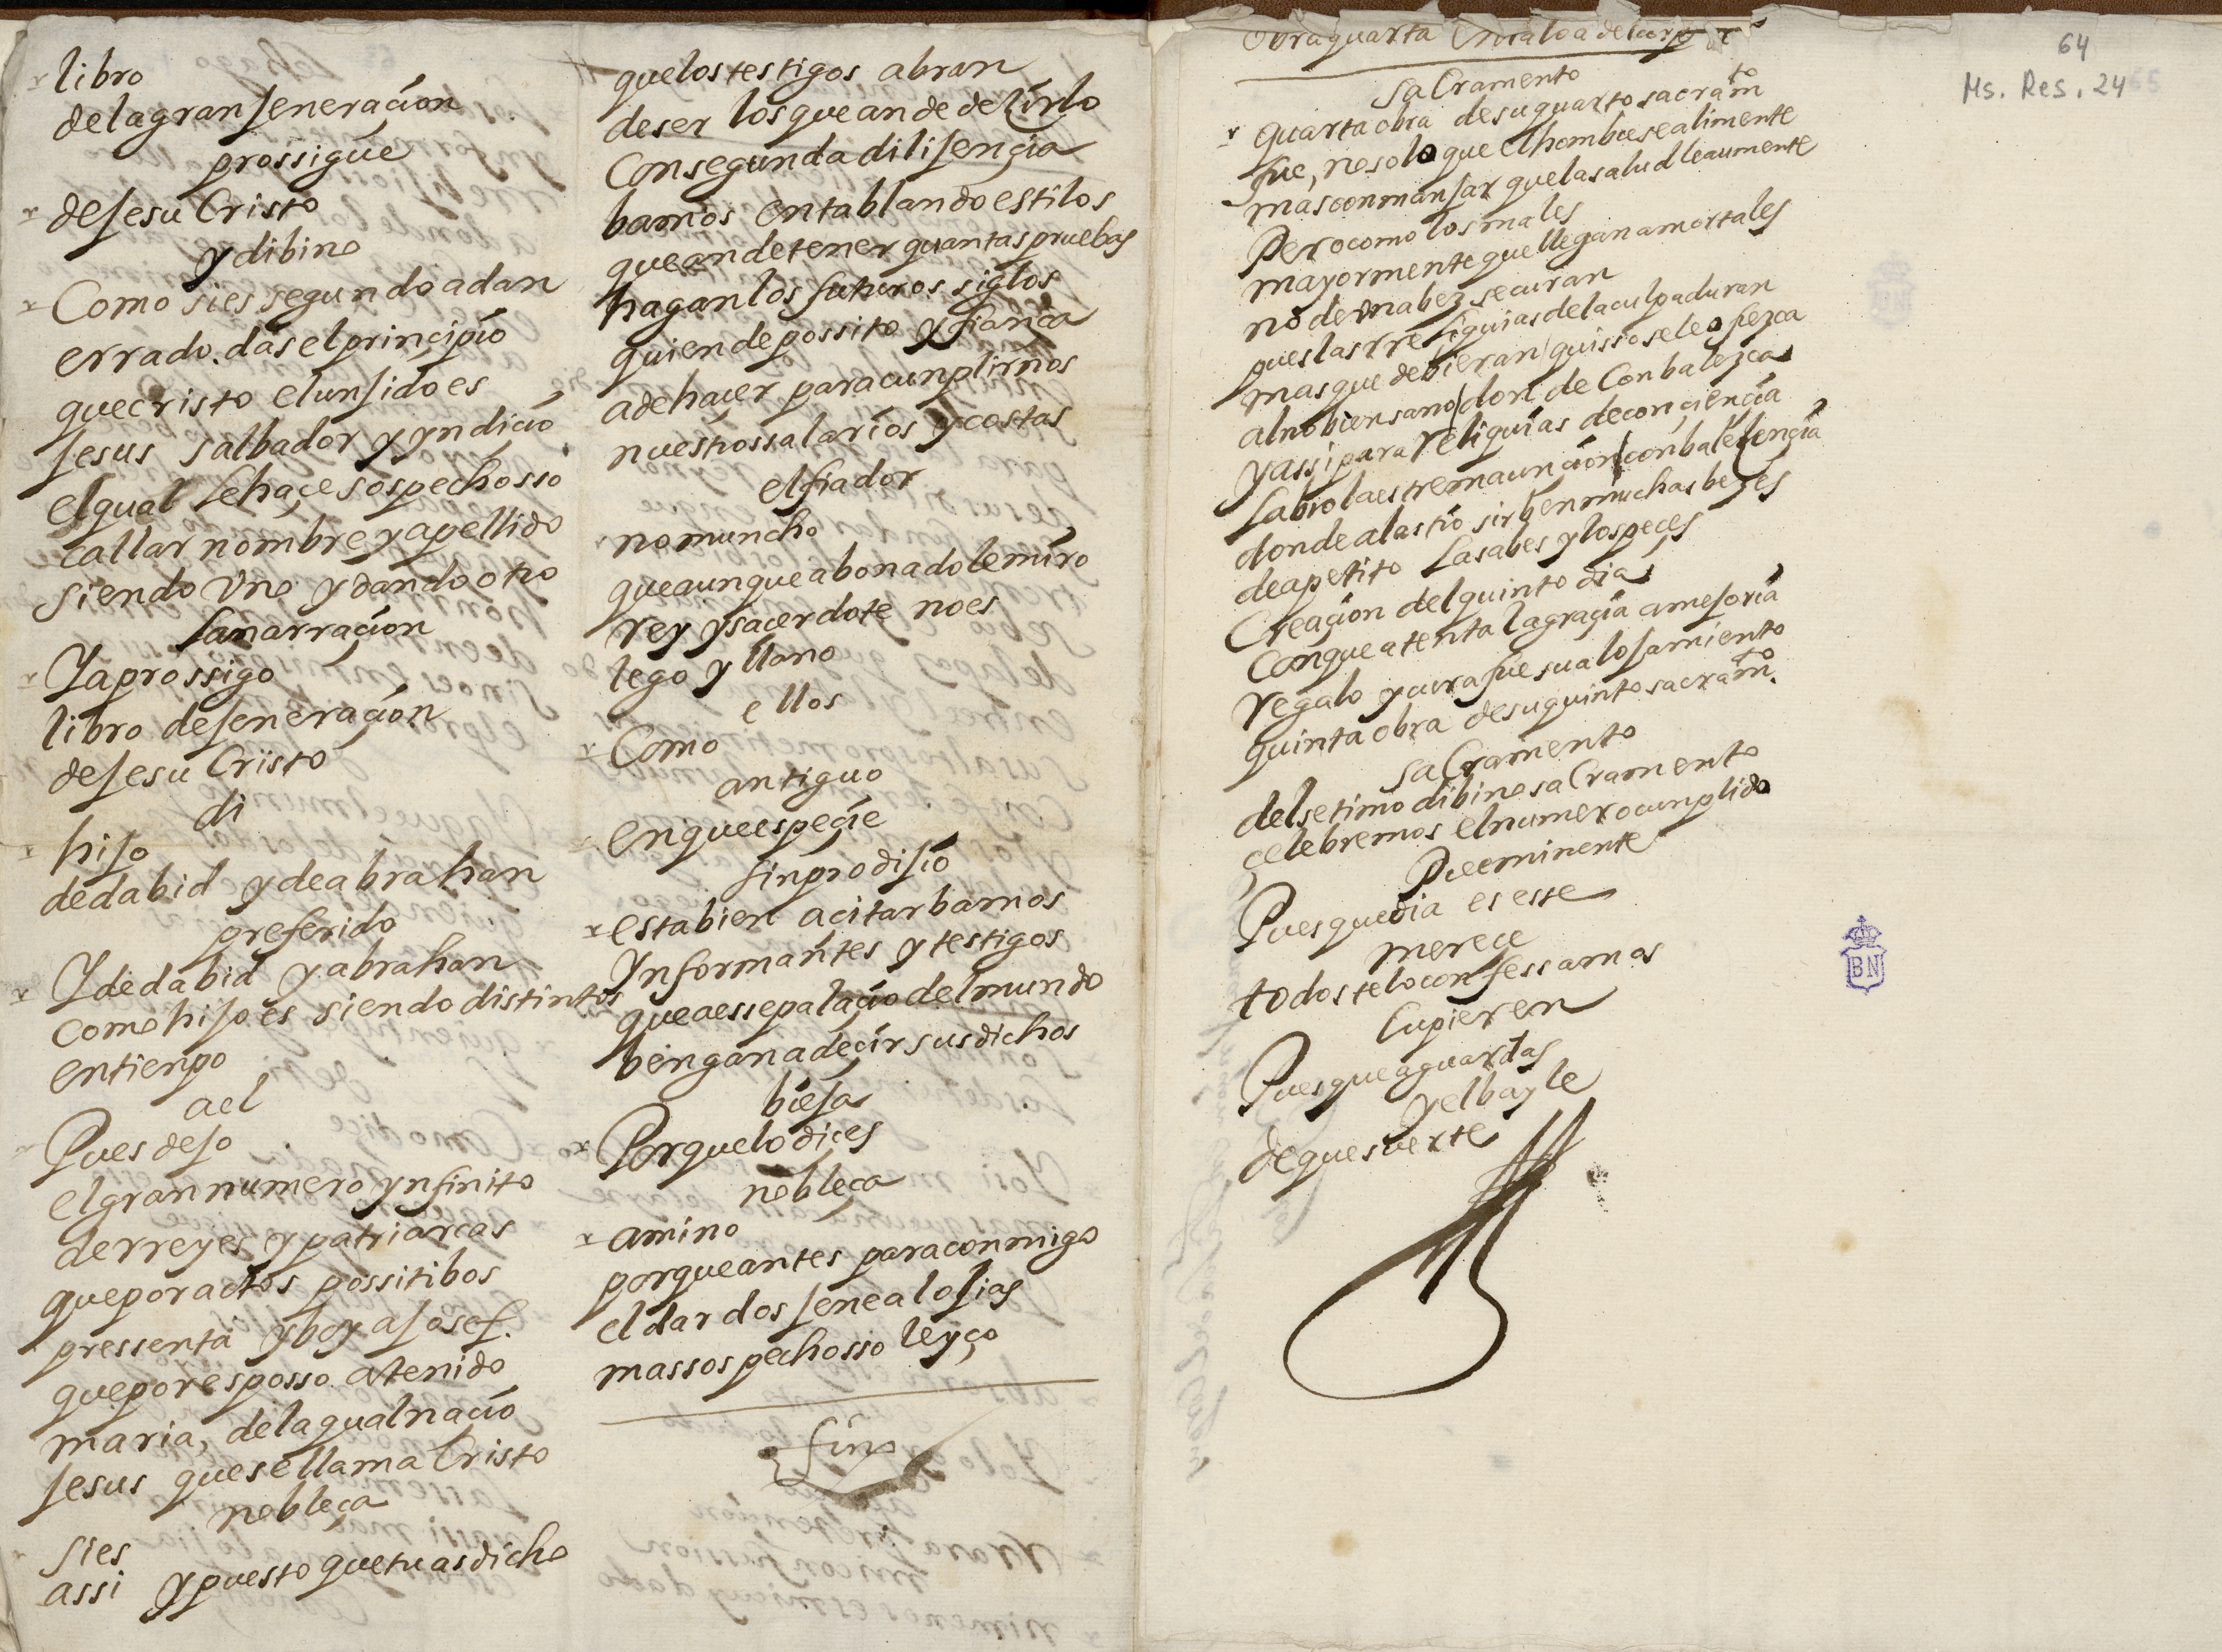 libro
delagran jeneraçion
prossigue
dejesu Cristo
y dibino
Como sies segundo adan
errado das el principio
que cristo elunjido es
jesus salbador y yndiçio
el qual se haçe sospechosso
callar nombre y apellido
siendo Uno y dando otro
la narraçion
Ya prossigo
libro de jeneraçion
dejesu Cristo
di
hijo
de dabid y de abrahan
preferido
Y de dabid y abrahan
como hijo es siendo distintos
en tienpo
ael
Pues dejo
el gran numero ynfinito
de rreyes y patriarcas
que por actos possitibos
pressenta y boy a josef.
que por esposso a tenido
maria, de la qual naçio
jesus que se llama Cristo
nobleça
si es
assi y puesto que tu as dicho
que los testigos abran
de ser los que an de dezirlo
Con segunda dilijençia
bamos entablando estilos
que an de tener quantas pruebas
hagan los futuros siglos
quien depossito y fiança
a de haçer para cunplirnos
nuestros salarios y costas
el fiador
no muncho
que aunque abonado le miro
rey y saçerdote no es
lego y llano
ellos
Como
antiguo
en que espeçie
sin prodijio
esta bien a çitar bamos
Ynformantes y testigos
que a esse palaçio del mundo
bengan a deçir sus dichos
bieja
Porque lo diçes
nobleça
a mi no
porque antes para conmigo
el dar dos jenealojias
mas sospechosso leyço
fin
Obra quarta
64
Ms. Res. 24
65
saCramento
quarta obra de su quarto sacramto
fue, no solo que el hombre se alimente
mas con manjar que la salud le aumente
Pero como los males
mayormente que llegan a mortales
no de una bez se curan
pues las rreliquias de la culpa duran
mas que debieran / quisso se le ofrezca
al no bien sano / donde Conbalezca
y assi para reliquias de conçiençia
labro la estrema unçion / conbaleçençia
donde al astio sirben muchas bezes
de apetito las abes y los peçes
Creaçion del quinto dia
Con que atenta la graçia a mejoria
regalo y cura fue su alojamiento
quinta obra de su quinto sacramto.
saCramento
del setimo dibino saCramento
çelebremos el numero cunplido
Preeminente
Pues que dia es esse
mereçe
todos te lo confessamos
Cupieren
Pues que aguardas
y el bayle
de que suerte
BN